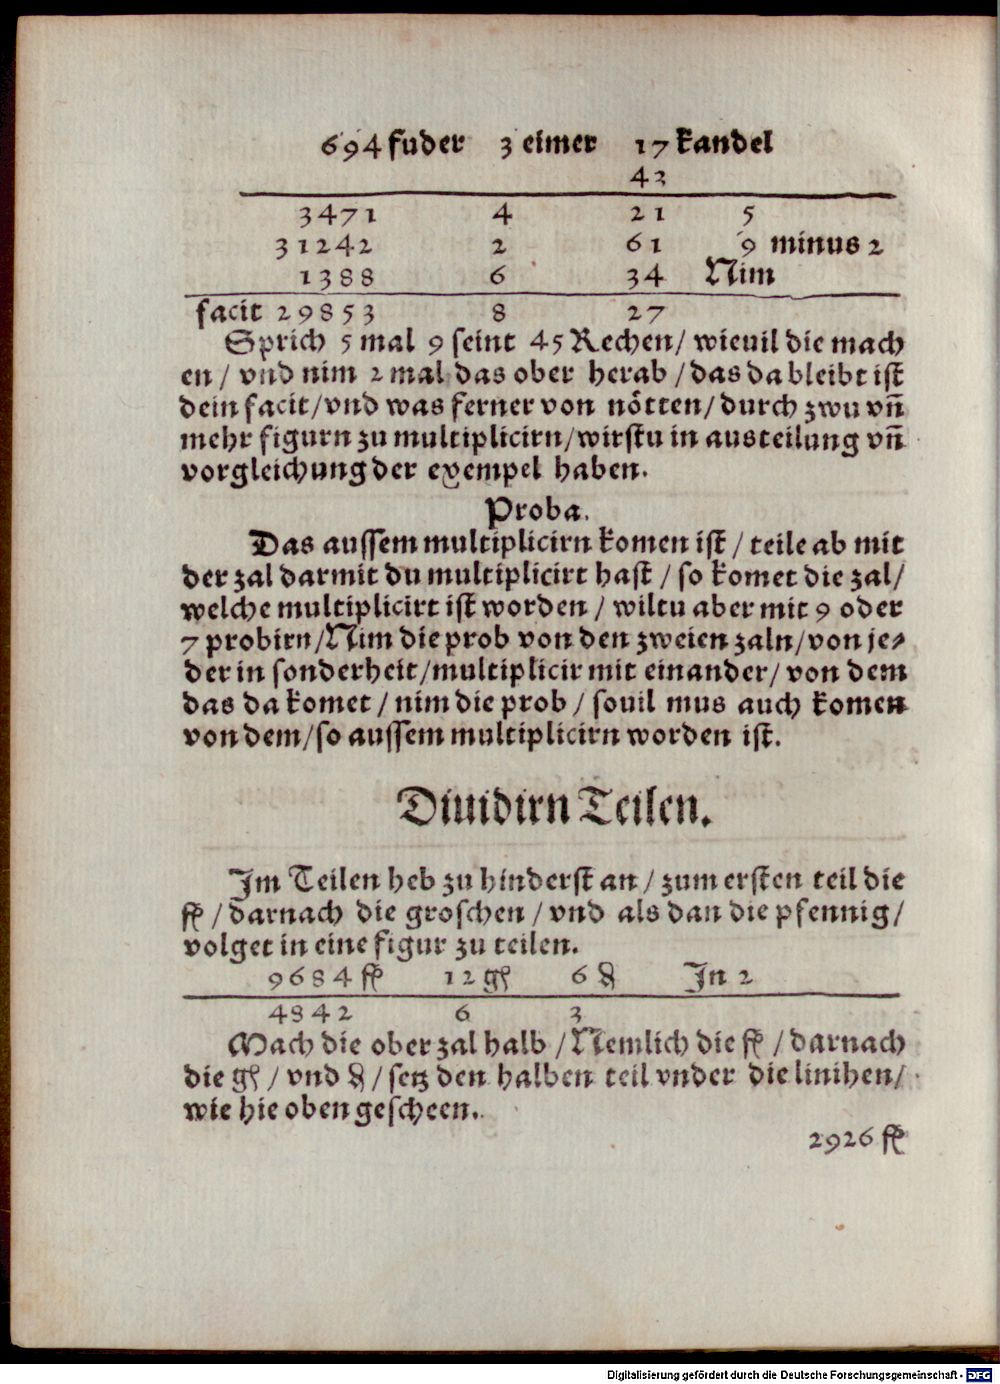 694 fuder 3 eimer 17 kandel
43
3471 4 21 5
31242 2 61 9 minus 2
1388 6 34 Nim
facit 29853 8 27
Sprich 5 mal 9 seint 45 Rechen/ wieuil die mach
en/ vnd nim 2 mal das ober herab/das da bleibt ist
dein facit/vnd was ferner von nötten/durch zwu vn̄
mehr figurn zu multiplicirn/wirstu in austeilung vn̄
vorgleichung der exempel haben.
Proba.
Das aussem multiplicirn komen ist/ teile ab mit
der zal darmit du multiplicirt hast/ so komet die zal/
welche multiplicirt ist worden/ wiltu aber mit 9 oder
7 probirn/Nim die prob von den zweien zaln/von je⸗
der in sonderheit/multiplicir mit einander/ von dem
das da komet/ nim die prob/ souil mus auch komen
von dem/so aussem multiplicirn worden ist.
Diuidirn Teilen.
Im Teilen heb zu hinderst an/ zum ersten teil die
fl/ darnach die groschen/ vnd als dan die pfennig/
volget in eine figur zu teilen.
9684 fl 12 gl 6 ₰ In 2
4842 6 3
Mach die ober zal halb/Nemlich die fl/ darnach
die gl/ vnd ₰/ setz den halben teil vnder die linihen/
wie hie oben gescheen.
2926 fl
Digitalisierung gefördert durch die Deutsche Forschungsgemeinschaft - DFG